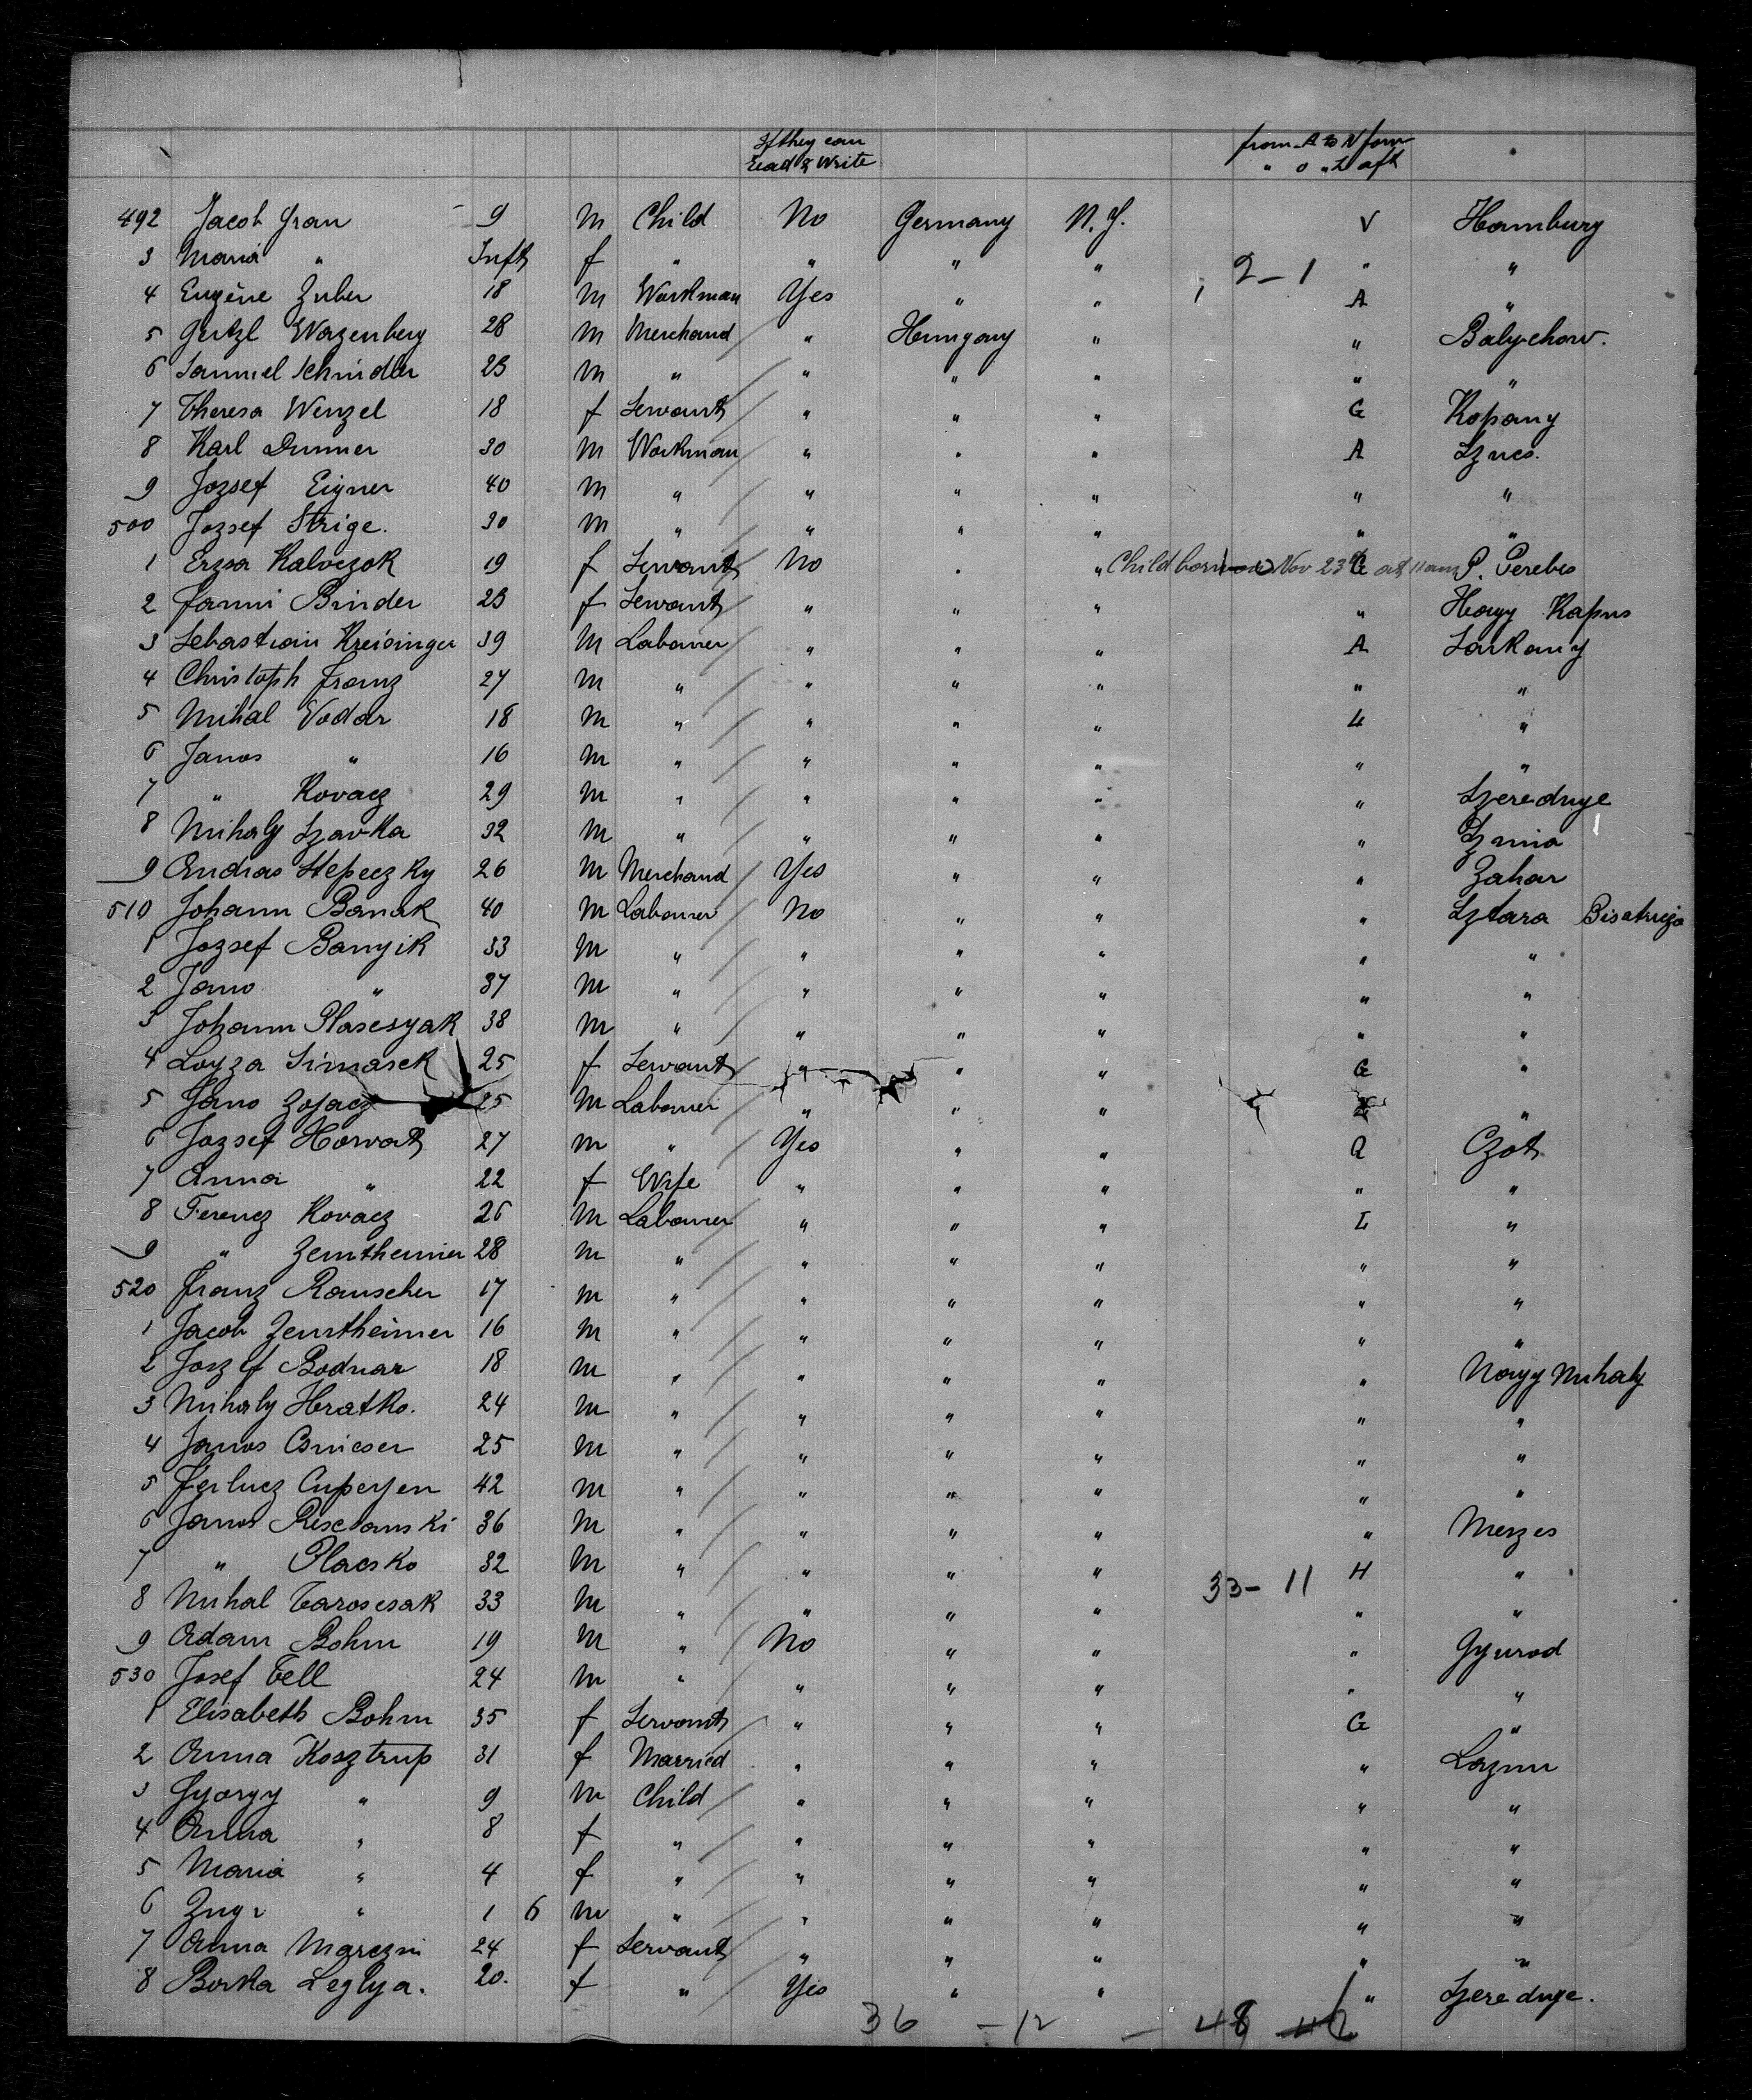 If they can from A to N forw
Read & Write " O " Z aft
492 Jacob Gran 9 M Child No Germany N.Y. V Hamburg
3 Maria " Inft f " " " " 2-1 " "
4 Eugène Zuber 18 M Workman Yes " " 1 A "
5 Gertzl Wazenberg 28 M Merchand " Hungary " " Balychow.
6 Samuel Schindler 23 M " " " " " "
7 Theresa Wenzel 18 f Servant " " " G Kopany
8 Karl Dunner 30 M Workman " " " A Sznes.
9 Jozsef Eigner 40 M " " " " " "
500 Jozsef Strige. 30 M " " " " " "
1 Erzsa Kalvczok 19 f Servant No " " Child born on Nov 23 G at 11 am P. Perebes
2 Fanni Binder 23 f Servant " " " " Hagy Kapus
3 Sebastian Kreisinger 39 M Labourer " " " A Sarkany
4 Christoph Franz 27 M " " " " " "
5 Mihal Vodar 18 M " " " " L "
6 Janos " 16 M " " " " " "
7 " Kovacz 29 M " " " " " Szerednye
8 Mihaly Szavka 32 M " " " " " Izmia
9 Andras Stepeczky 26 M Merchand Yes " " " Zahar
510 Johann Banak 40 M Labourer No " " " Sztara Bisatricza
1 Jozsef Banyik 33 M " " " " " "
2 Jano " 37 M " " " " " "
3 Johann Plascsyak 38 M " " " " " "
4 Loyza Simasek 25 f Servant " " " G "
5 Jano Zojacz 25 M Labourer " " " "
6 Jozsef Horvath 27 M " Yes " " Q Czoth
7 Anna " 22 f Wife " " " " "
8 Ferencz Kovacz 26 M Labourer " " " L "
9 " Zentheimer 28 M " " " " " "
520 Franz Rauscher 17 M " " " " " "
1 Jacob Zentheimer 16 M " " " " " "
2 Joszef Bodnar 18 M " " " " " Nagy Mihaly
3 Mihaly Hratko. 24 M " " " " " "
4 Janos 25 M " " " " " "
5 42 M " " " " " "
6 Janos 36 M " " " " " Merzes
7 " Placsko 32 M " " " " 33-11 H "
8 Mihal Tarosesak 33 M " " " " " "
9 Adam Bohm 19 M " No " " " Gyurod
530 Josef Tell 24 M " " " " " "
1 Elisabeth Bohm 35 f Servant " " " G "
2 Anna Kosztrup 31 f Married " " " " Lazun
3 Gyorgy " 9 M Child " " " " "
4 Anna " 8 f " " " " " "
5 Maria " 4 f " " " " " "
6 " 1 6 M " " " " " "
7 Anna Marczin 24 f Servant " " " " "
8 Borka Leglya. 20. f " Yes " " " Szerednye.
36 - 12 - 48